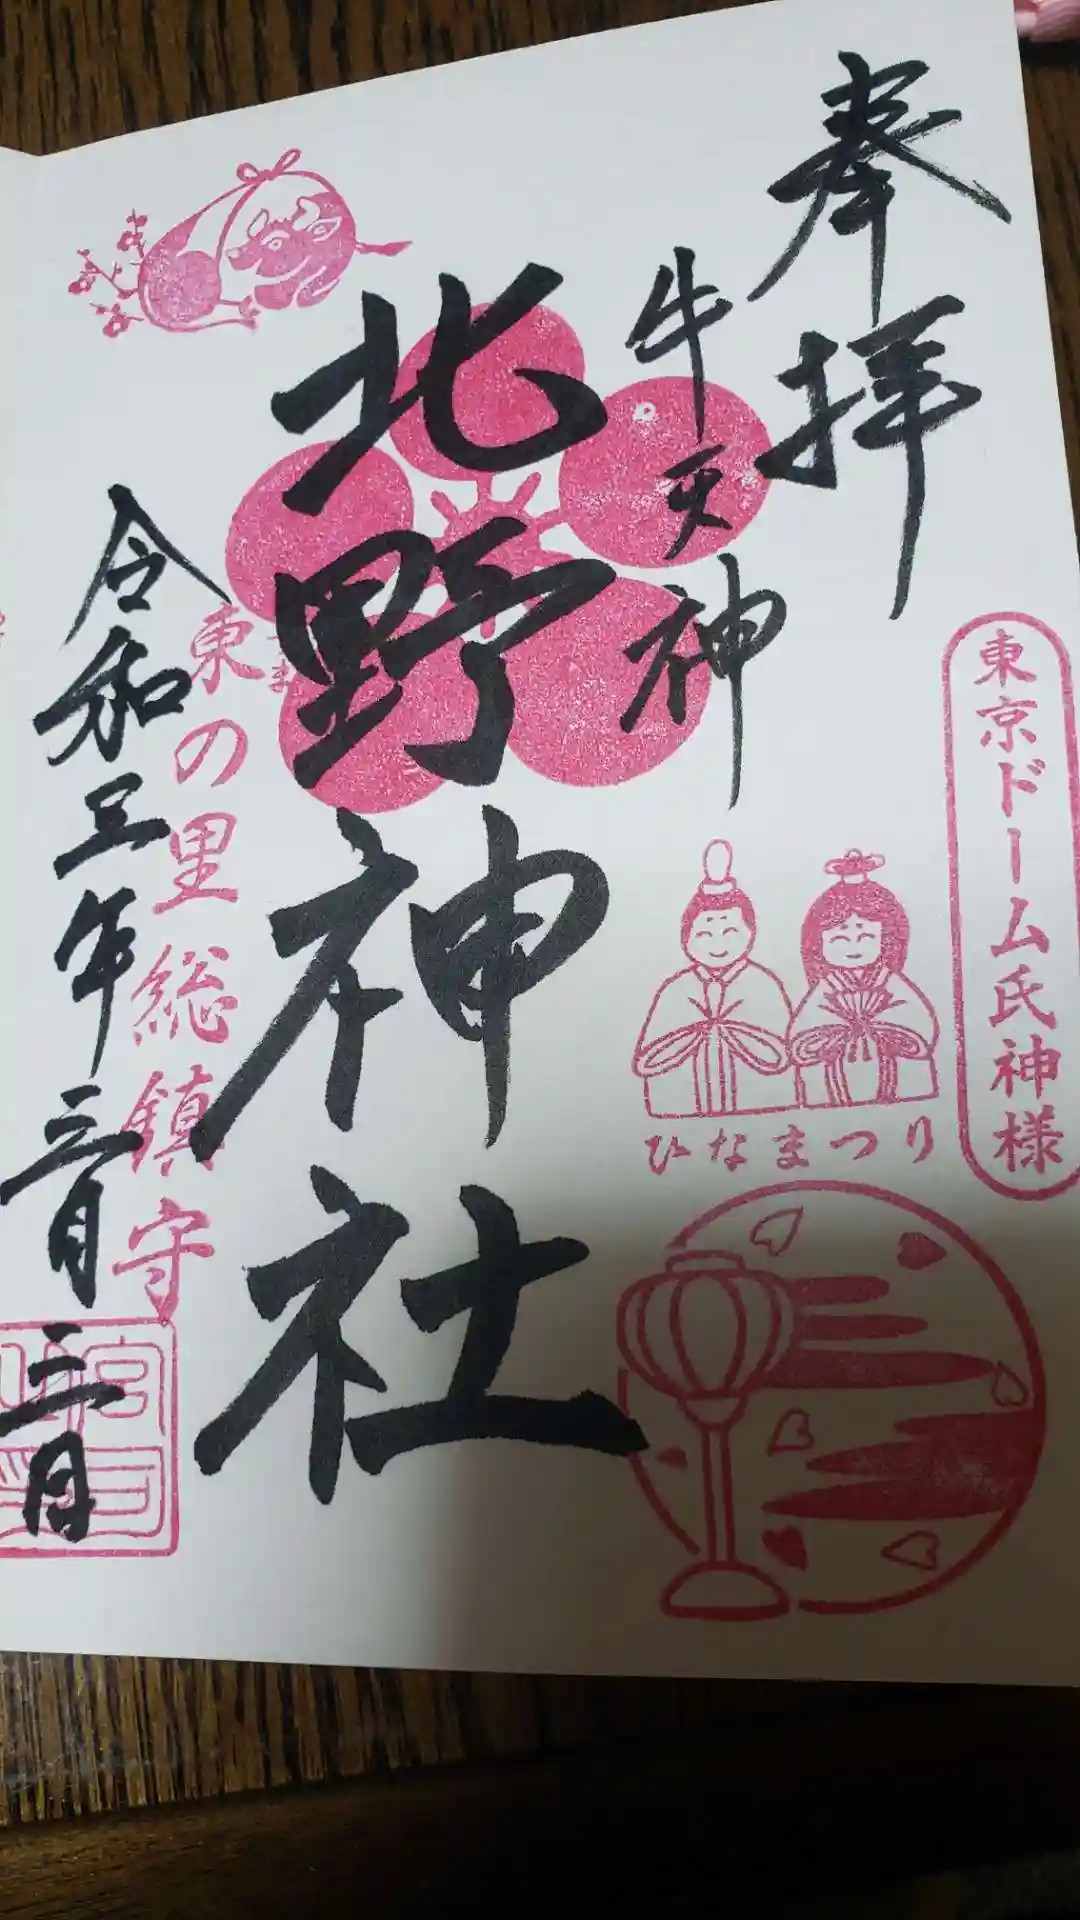 奉拝
東京ドーム氏神様
牛天神
ひなまつり
北野神社
東の里総鎮守
令和三年三月三日